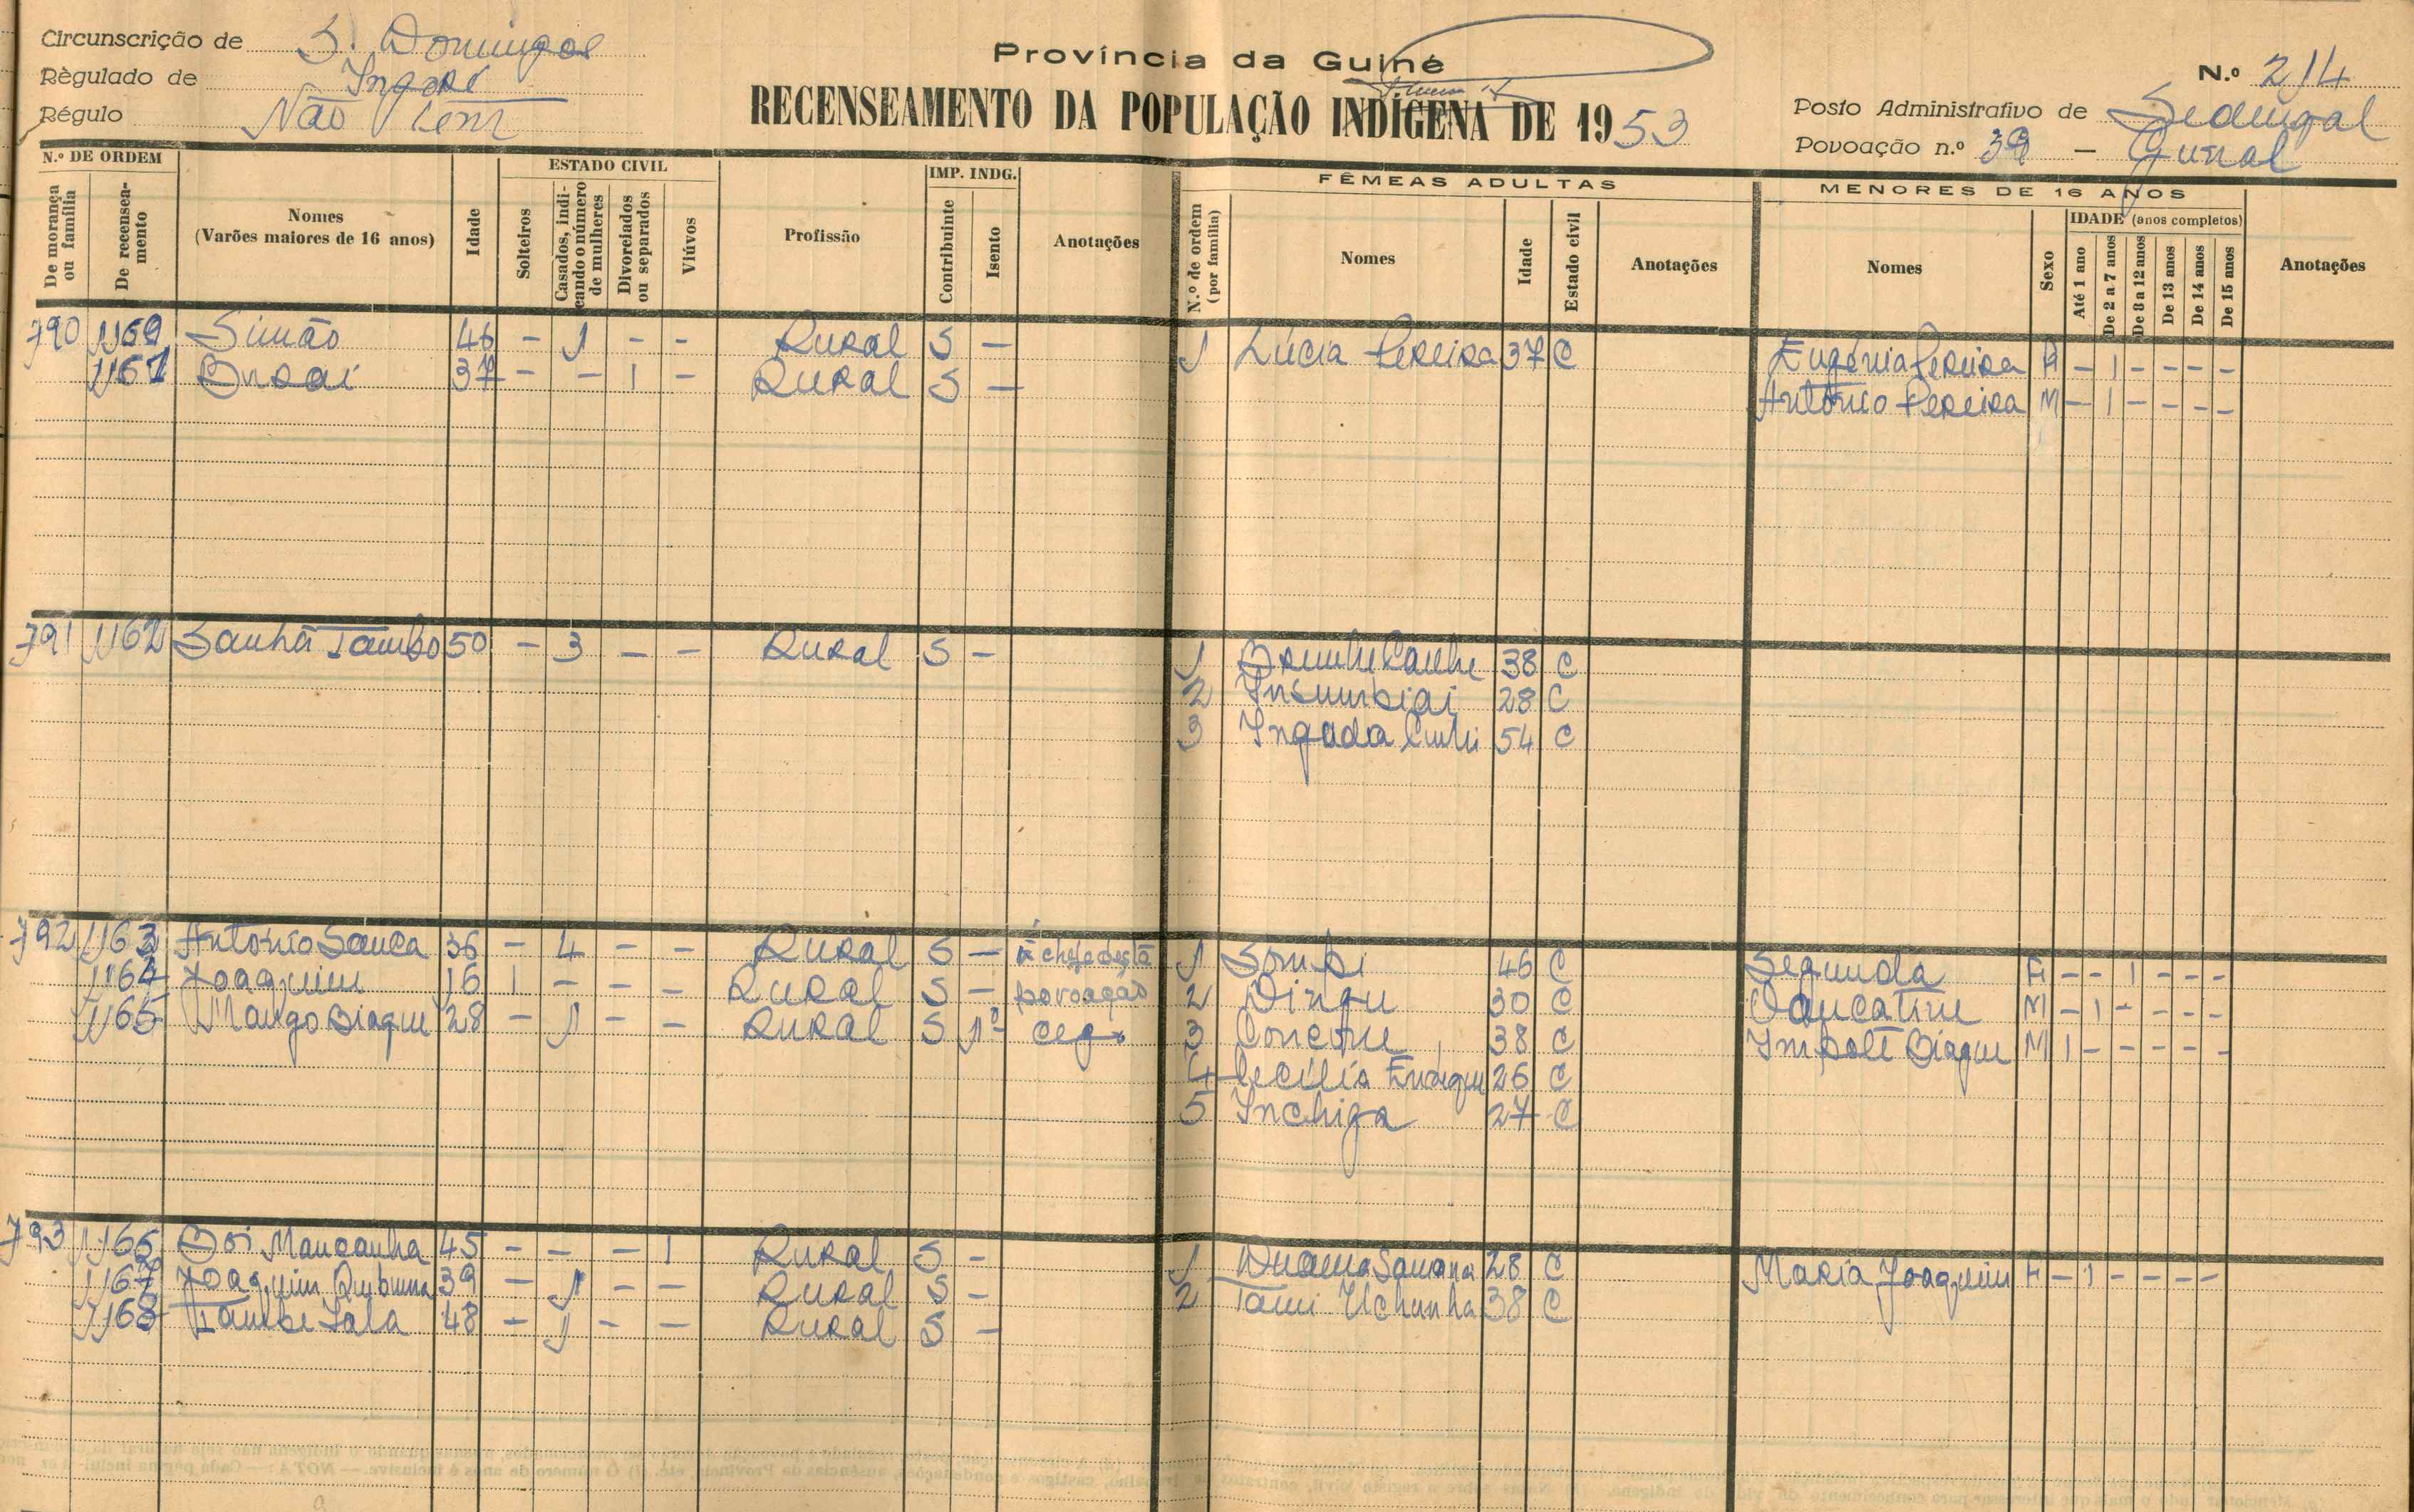 Circunscrição de S. Domingos
Règulado de Ingoré
Régulo Não tem
Província da Guiné
RECENSEAMENTO DA POPULAÇÃO INDÍGENA DE 1953
N.º 214
Posto Administrativo de Sedengal
Povoação n.º 39 –
N.º DE ORDEM
De morança ou família
De recenseamento
Nomes (Varões maiores de 16 anos)
Idade
ESTADO CIVIL
Solteiros
Casados, indicando o número de mulheres
Divorciados ou separados
Viúvos
Profissão
IMP. INDG.
Contribuinte
Isento
Anotações
FÊMEAS ADULTAS
N.º de ordem (por família)
Nomes
Idade
Estado civil
Anotações
MENORES DE 16 ANOS
Nomes
Sexo
IDADE (anos completos)
Até 1 ano
De 2 a 7 anos
De 8 a 12 anos
De 13 anos
De 14 anos
De 15 anos
Anotações
790 Simão 46 – 1 – – Rural S – 1 Lucia Pereira 37 C Eugénia Pereira F – 1 – – – –
1161 37 – – 1 – Rural S – António Pereira M – 1 – – – –
791 1162 Sanhá Tambo 50 – 3 – – Rural S – 1 38 C
2 Insumbiai 28 C
3 Ingada 54 C
792 1163 António Sanca 36 – 4 – – Rural S – é chefe desta 1 Sombi 46 C Segunda F – – 1 – – –
1164 Joaquim 16 1 – – – Rural S – povoação 2 Dingu 30 C M – 1 – – – –
1165 Mango Biague 28 – 1 – – Rural S 1º cego 3 38 C Biague M 1 – – – – –
4 Cecília 26 C
5 Inchiga 27 C
793 1166 Boi Mancanha 45 – – – 1 Rural S – 1 28 C Maria Joaquim F – 1 – – – –
1167 Joaquim 39 – 1 – – Rural S – 2 38 C
1168 48 – 1 – – Rural S –